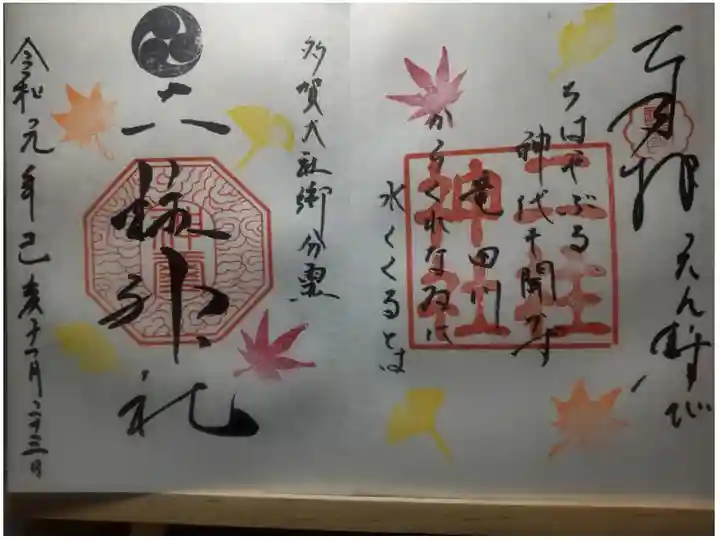 奉拝
えん結び
ちはやぶる
神代も聞かず
竜田川
からくれなゐに
水くくるとは
三柱
神社
多賀大社御分霊
神社
令和元年己亥十一月二十三日